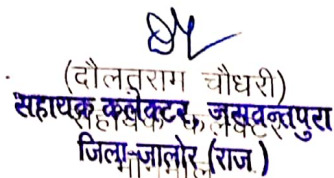 (दौलतराम चौधरी)
सहायक कलेक्टर, जसवन्तपुरा
जिला-जालोर (राज.)